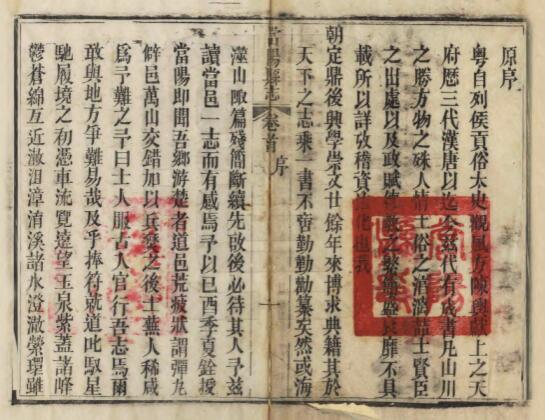 原序
粵自列侯貢俗太史觀風方陳輿獻上之天
府歷三代漢唐以迄今茲代有成書凡山川
之勝方物之殊人情土俗之淯漓喆士賢臣
之出處以及政賦之繁靡不具
載所以詳攷稽資化也我
朝定鼎後興學崇文廿餘年來博求典籍其於
天下之志乘一書不啻勤勤勸纂矣然或海
當陽縣志 卷首 序 一
澨山陬篇殘簡斷續先啟後必待其人予茲
讀當邑一志而有感焉予以已酉季夏銓授
當陽即聞吾鄉游楚者道邑荒疲狀謂彈丸
僻邑萬山交錯加以兵燹之後土蕪人稀咸
爲予難之予曰士人服古人官行吾志焉爾
敢與地方爭難易哉及乎捧符就道此馭星
馳履境之初憑車流覽遠望玉泉紫蓋諸峰
鬱蒼綿互近瀲沮漳淯溪諸水澄澈縈環雖